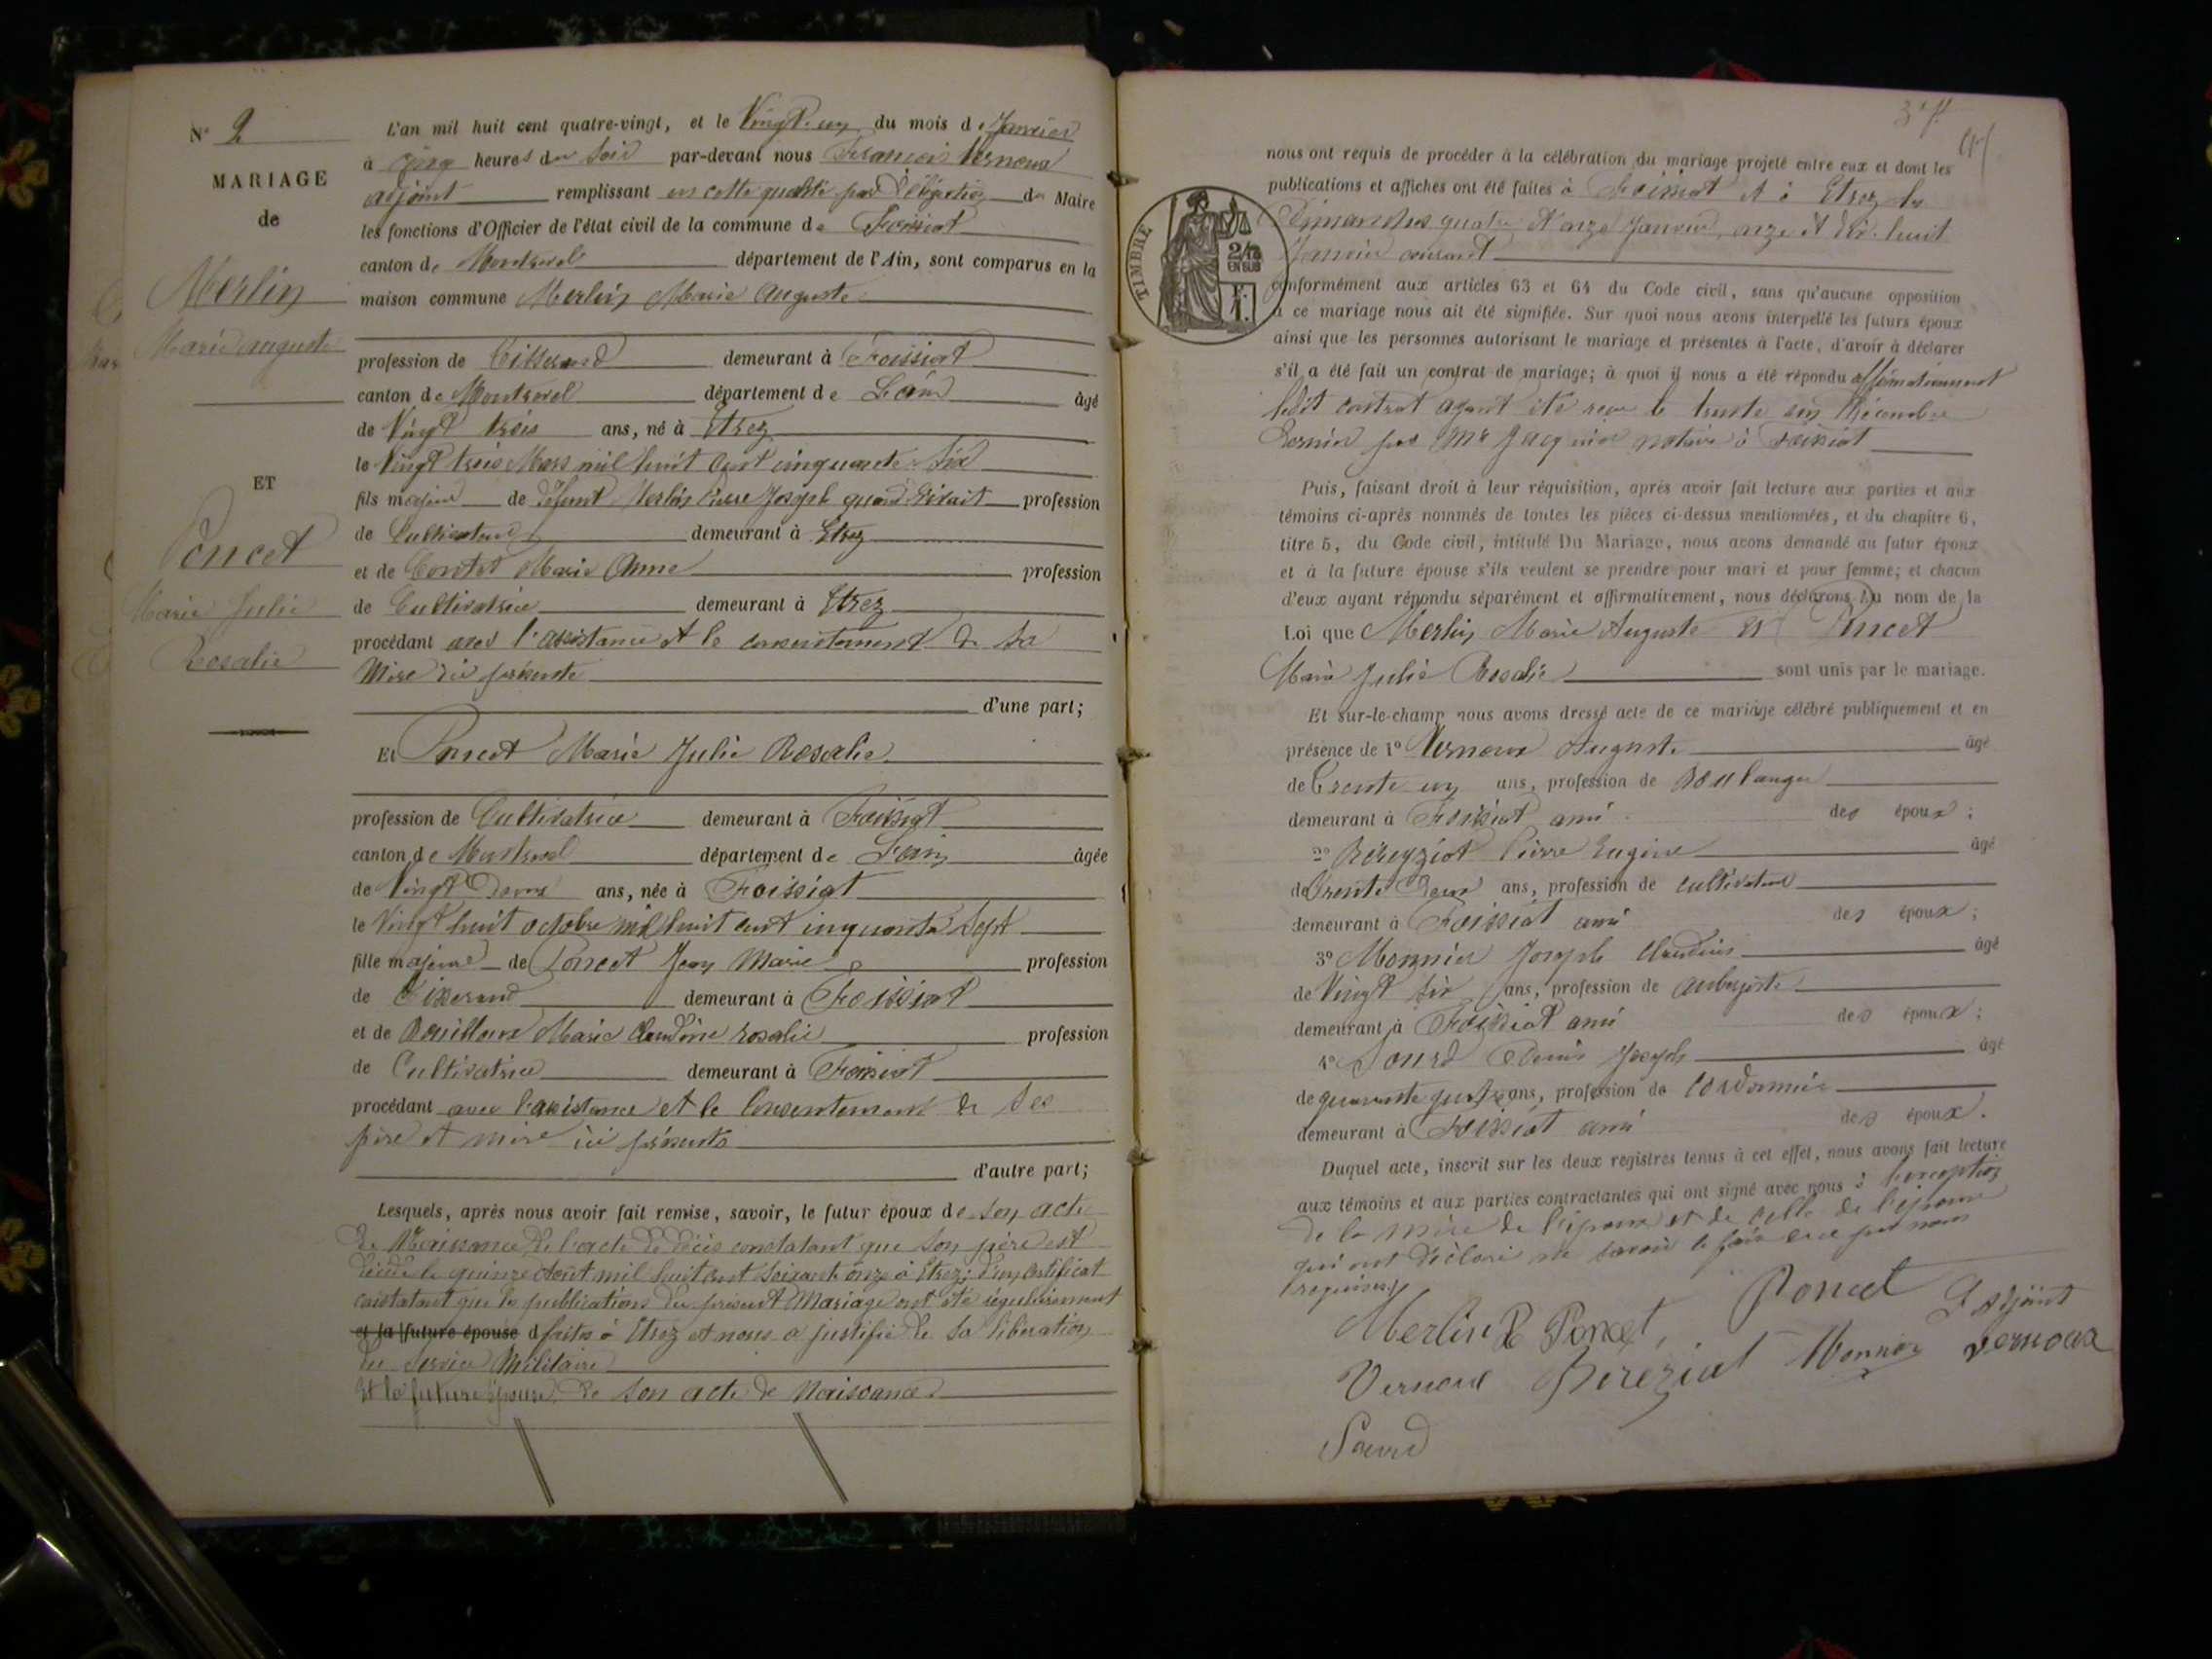 N° 2
MARIAGE
de
Merlin
Marie auguste
ET
Poncet
Marie Julie
Rosalie
L'an mil huit cent quatre-vingt, et le Vingt-un du mois de Janvier
à cinq heures du soir par-devant nous François Vernoux
adjoint remplissant en cette qualité par délégation du Maire
les fonctions d'Officier de l'état civil de la commune de Foissiat
canton de Montrevel département de l'Ain, sont comparus en la
maison commune Merlin Marie Auguste
profession de Tisserand demeurant à Foissiat
canton de Montrevel département de L'ain âgé
de Vingt trois ans, né à Etrez
le Vingt trois Mars mil huit cent cinquante-six
fils majeur de défunt Merlin Pierre Joseph quand vivait profession
de Cultivateur demeurant à Etrez
et de Contet Marie Anne profession
de Cultivatrice demeurant à Etrez
procédant avec l'assistance et le consentement de sa
Mère ici présente
d'une part;
Et Poncet Marie Julie Rosalie
profession de Cultivatrice demeurant à Foissiat
canton de Montrevel département de L'ain âgée
de Vingt Deux ans, née à Foissiat
le Vingt huit octobre mil huit cent cinquante Sept
fille majeure de Poncet Jean Marie profession
de Tisserand demeurant à Foissiat
et de Marie Claudine rosalie profession
de Cultivatrice demeurant à Foissiat
procédant avec l'assistance et le Consentement de Ses
père et mère ici présents
d'autre part;
Lesquels, après nous avoir fait remise, savoir, le futur époux de son acte
de Naissance de l'acte de Décès constatant que son père est
décédé le quinze Août mil huit cent soixante onze à Etrez; d'un certificat
constatant que les publications du présent Mariage ont été régulièrement
et la future épouse d faites à Etrez et nous a justifié de sa libération
du Service Militaire
Et la future épouse de son acte de Naissance
nous ont requis de procéder à la célébration du mariage projeté entre eux et dont les
publications et affiches ont été faites à Foissiat et à Etrez les
Dimanches quatre et onze Janvier, onze et dix-huit
Janvier courant
TIMBRE
2/10
EN SUS
conformément aux articles 63 et 64 du Code civil, sans qu'aucune opposition
à ce mariage nous ait été signifiée. Sur quoi nous avons interpellé les futurs époux
ainsi que les personnes autorisant le mariage et présentes à l'acte, d'avoir à déclarer
s'il a été fait un contrat de mariage; à quoi il nous a été répondu affirmativement
ledit contrat ayant été reçu le trente un Décembre
Dernier par Me Jacquier notaire à Foissiat
Puis, faisant droit à leur réquisition, après avoir fait lecture aux parties et aux
témoins ci-après nommés de toutes les pièces ci-dessus mentionnées, et du chapitre 6,
titre 5, du Code civil, intitulé Du Mariage, nous avons demandé au futur époux
et à la future épouse s'ils veulent se prendre pour mari et pour femme; et chacun
d'eux ayant répondu séparément et affirmativement, nous déclarons Au nom de la
Loi que Merlin Marie Auguste et Poncet
Marie Julie Rosalie sont unis par le mariage.
Et sur-le-champ nous avons dressé acte de ce mariage célébré publiquement et en
présence de 1° Vernoux Auguste âgé
de Trente un ans, profession de Boulanger
demeurant à Foissiat ami des époux;
2° Béreyziat Pierre Eugène âgé
de Trente Deux ans, profession de cultivateur
demeurant à Foissiat ami des époux;
3° Monnier Joseph Claudius âgé
de Vingt six ans, profession de aubergiste
demeurant à Foissiat ami des époux;
4° Sourd Denis Joseph âgé
de quarante quatre ans, profession de Cordonnier
demeurant à Foissiat ami des époux.
Duquel acte, inscrit sur les deux registres tenus à cet effet, nous avons fait lecture
aux témoins et aux parties contractantes qui ont signé avec nous à l'exception
de la mère de l'époux et de celle de l'épouse
qui ont déclaré ne savoir le faire de ce par nous
requises
Merlin R Poncet Poncet L'adjoint
Vernoux Bereziat Monnier Vernoux
Sourd